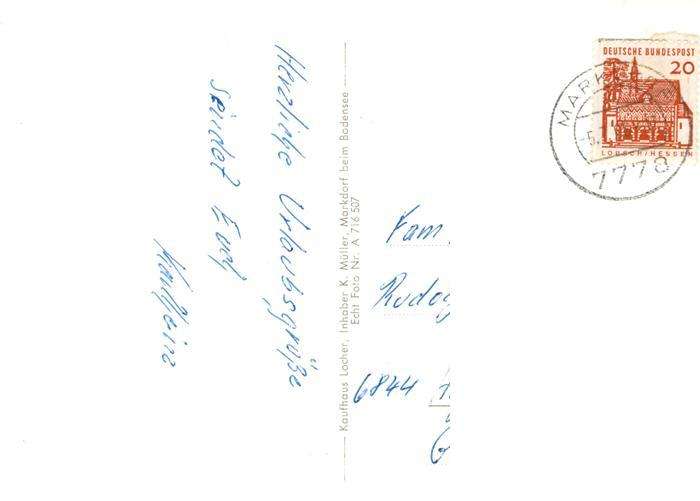 Herzliche Urlaubsgrüße
sendet Euch
Karlheinz
Kaufhaus Locher, Inhaber K. Müller, Markdorf beim Bodensee
Echt Foto Nr. A 716 507
DEUTSCHE BUNDESPOST
20
LORSCH/HESSEN
MARK
5.
7778
Fam.
6844